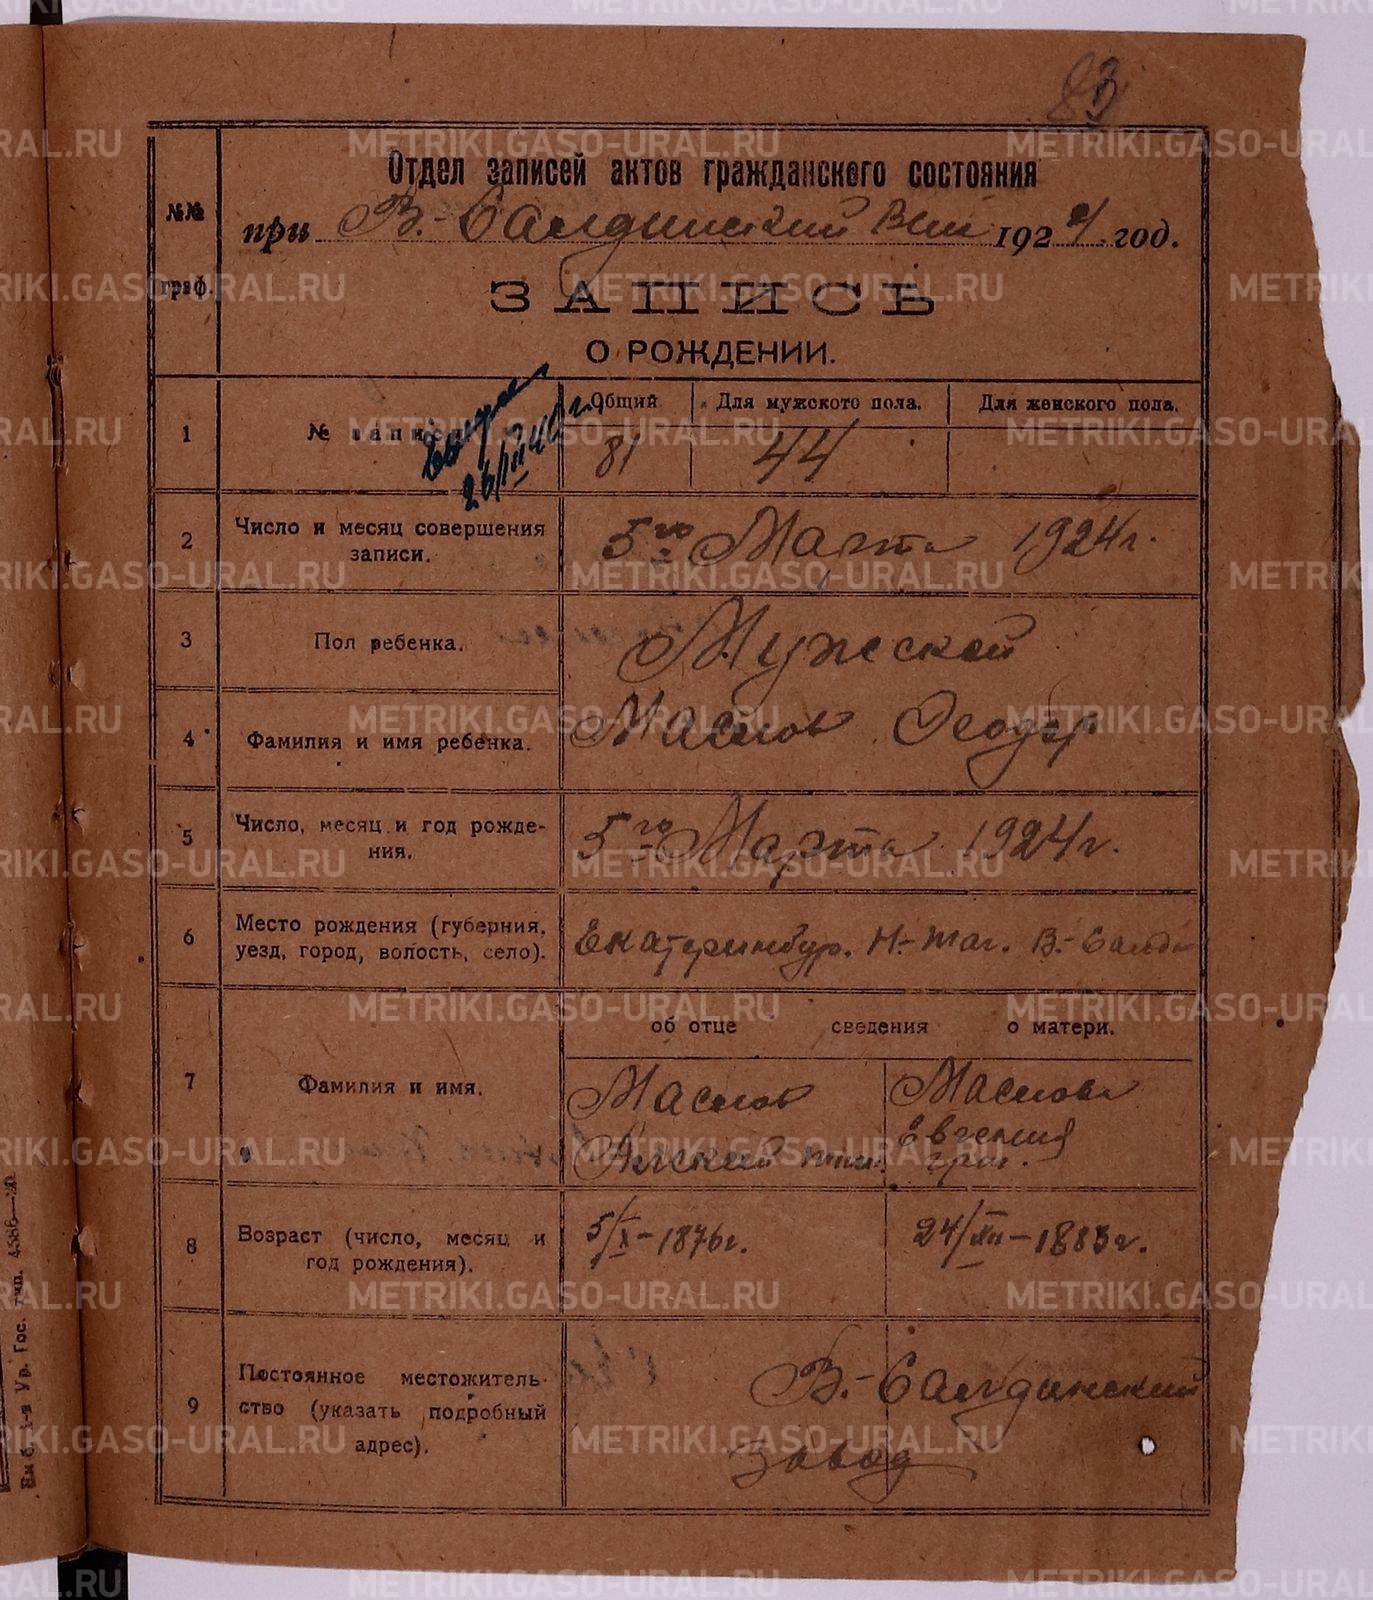 83
Отдел записей актов гражданского состояния
при В.-Салдинский Вик 1924 год.
№№ граф.
ЗАПИСЬ
О РОЖДЕНИИ.
1 № записи Общий Для мужского пола. Для женского пола.
26/III 40 г.
81 44
2 Число и месяц совершения записи. 5го Марта 1924 г.
3 Пол ребенка. Мужской
4 Фамилия и имя ребенка. Маслов Феодор
5 Число, месяц и год рожде-
ния. 5го Марта 1924 г.
6 Место рождения (губерния,
уезд, город, волость, село). Екатеринбур. Н.-Таг. В.-Салда
об отце сведения о матери.
7 Фамилия и имя. Маслов Маслова
Алексей Евгения
Григ.
8 Возраст (число, месяц и
год рождения). 5/X-1876 г. 24/XII-1883 г.
9 Постоянное местожитель-
ство (указать подробный
адрес). В.-Салдинский
завод
Екб. 1-я Ур. Гос. тип. 4586—20
METRIKI.GASO-URAL.RU